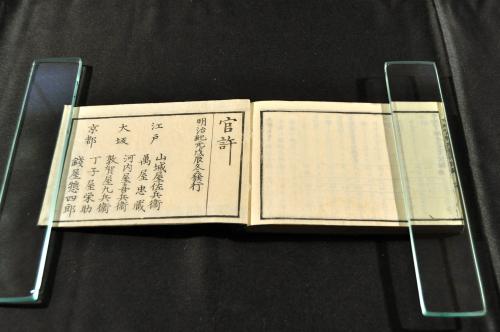 官許
明治紀元戊辰冬發行
江戸 山城屋佐兵衛
萬屋忠蔵
大坂 河内屋喜兵衛
敦賀屋九兵衛
京都 丁子屋栄助
錢屋惣四郎